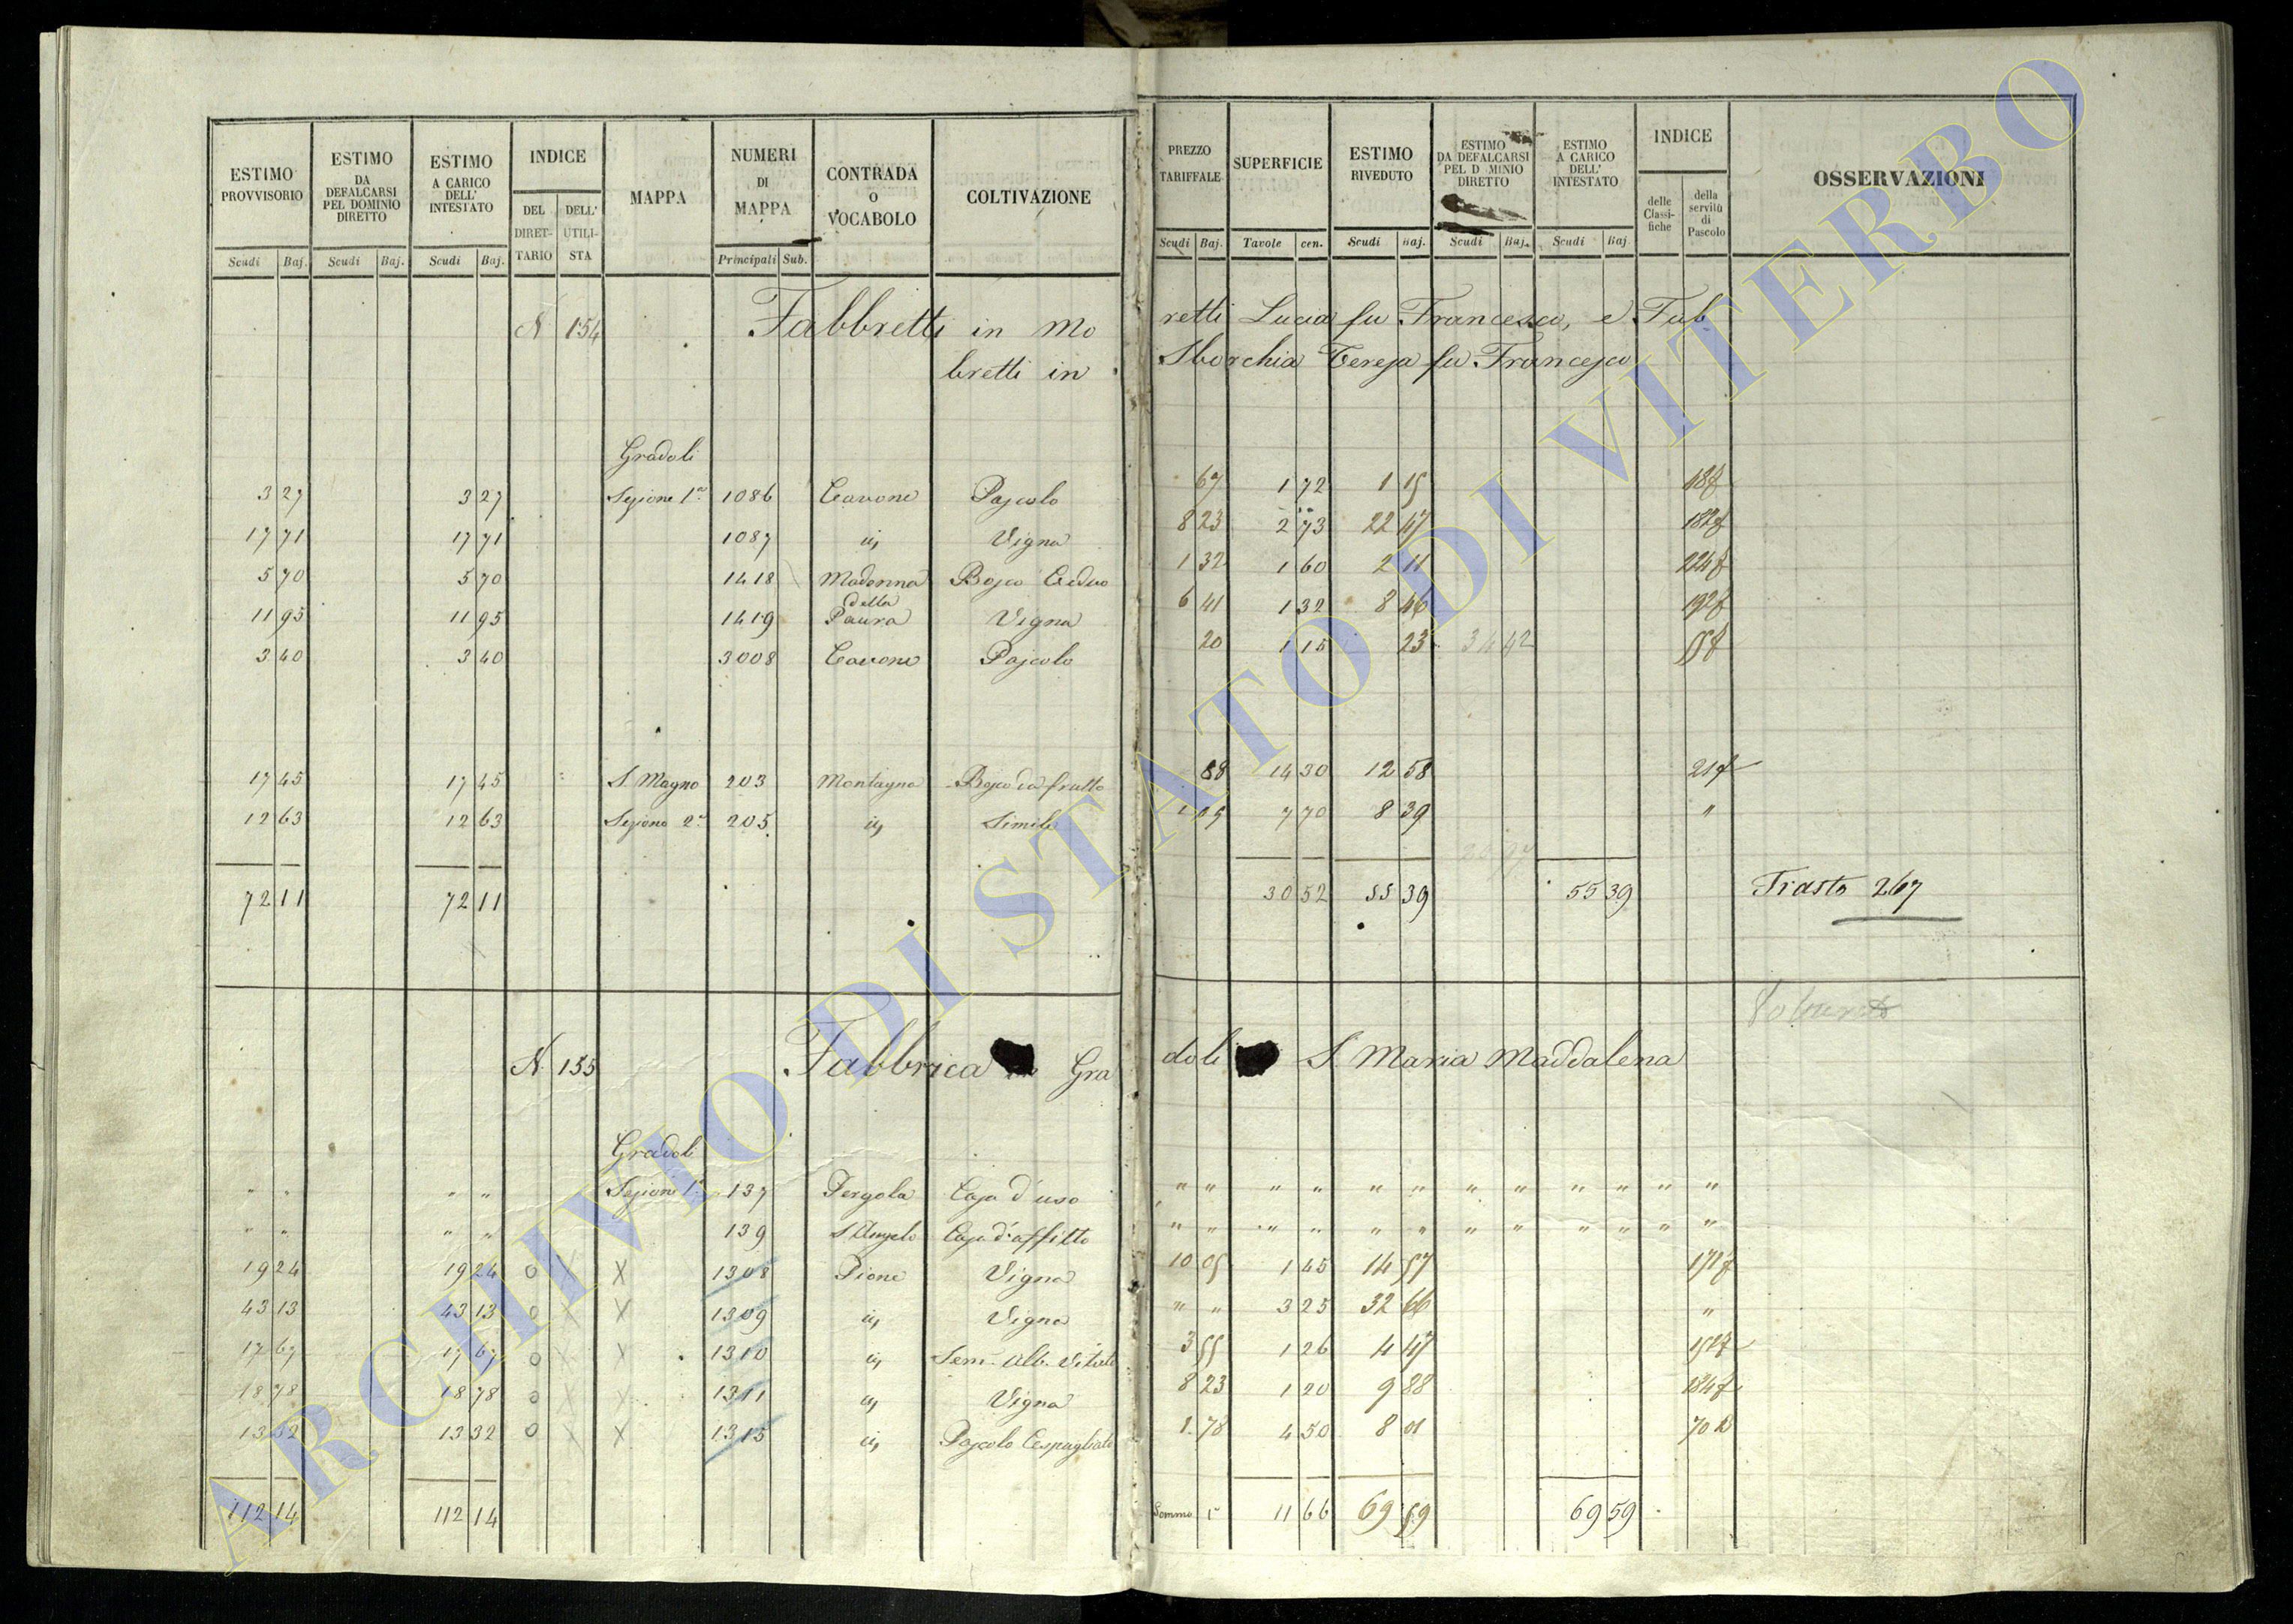 ESTIMO PROVVISORIO | ESTIMO DA DEFALCARSI PEL DOMINIO DIRETTO | ESTIMO A CARICO DELL' INTESTATO | INDICE | MAPPA | NUMERI DI MAPPA | CONTRADA o VOCABOLO | COLTIVAZIONE | PREZZO TARIFFALE | SUPERFICIE | ESTIMO RIVEDUTO | ESTIMO DA DEFALCARSI PEL D MINIO DIRETTO | ESTIMO A CARICO DELL' INTESTATO | INDICE | OSSERVAZIONI
DEL DIRET-TARIO | DELL' UTILI-STA | delle Classi-fiche | della servitù di Pascolo
Scudi | Baj. | Scudi | Baj. | Scudi | Baj. | Principali | Sub. | Scudi | Baj. | Tavole | cen. | Scudi | Baj. | Scudi | Baj. | Scudi | Baj.
N. 154 Fabbretti in Mo retti Lucia fu Francesco, e Fab
bretti in Sborchia Teresa fu Francesco
Gradoli
3 27 | 3 27 | Sezione 1a | 1086 | Cavone | Pascolo | 67 | 1 72 | 1 15 | 18f
17 71 | 17 71 | 1087 | id | Vigna | 8 23 | 2 73 | 22 47 | 182f
5 70 | 5 70 | 1418 | Madonna | Bosco Ceduo | 1 32 | 1 60 | 2 11 | 224f
11 95 | 11 95 | 1419 | della Paura | Vigna | 6 41 | 1 32 | 8 46 | 192f
3 40 | 3 40 | 3008 | Cavone | Pascolo | 20 | 1 15 | 23 | 34 42
17 45 | 17 45 | S. Magno | 203 | Montagna | Bosco da frutto | 88 | 14 30 | 12 58 | 217
12 63 | 12 63 | Sezione 2a | 205 | id | Simile | 1 09 | 7 70 | 8 39 | "
72 11 | 72 11 | 30 52 | 55 39 | 55 39 | Trasto 267
N. 155 Fabbrica Gra doli S. Maria Maddalena
Gradoli
" " | " " | Sezione 1a | 137 | Pergola | Casa d'uso | " " | " " | " " | " " | " " | " | "
" " | " " | 139 | S. Angelo | Casa d'affitto | " " | " " | " " | " " | " " | " | "
19 24 | 19 24 | o | X | X | 1308 | Pione | Vigna | 10 05 | 1 45 | 14 57 | 171f
43 13 | 43 13 | o | X | X | 1309 | id | Vigna | " " | 3 25 | 32 66 | "
17 67 | 17 67 | o | X | X | 1310 | id | Sem. Alb. Vitato | 3 55 | 1 26 | 4 47
18 78 | 18 78 | o | X | X | 1311 | id | Vigna | 8 23 | 1 20 | 9 88 | 184f
13 32 | 13 32 | o | X | X | 1315 | id | Pascolo Cespugliato | 1 78 | 4 50 | 8 01
112 14 | 112 14 | Somma | 11 66 | 69 59 | 69 59
ARCHIVIO DI STATO DI VITERBO